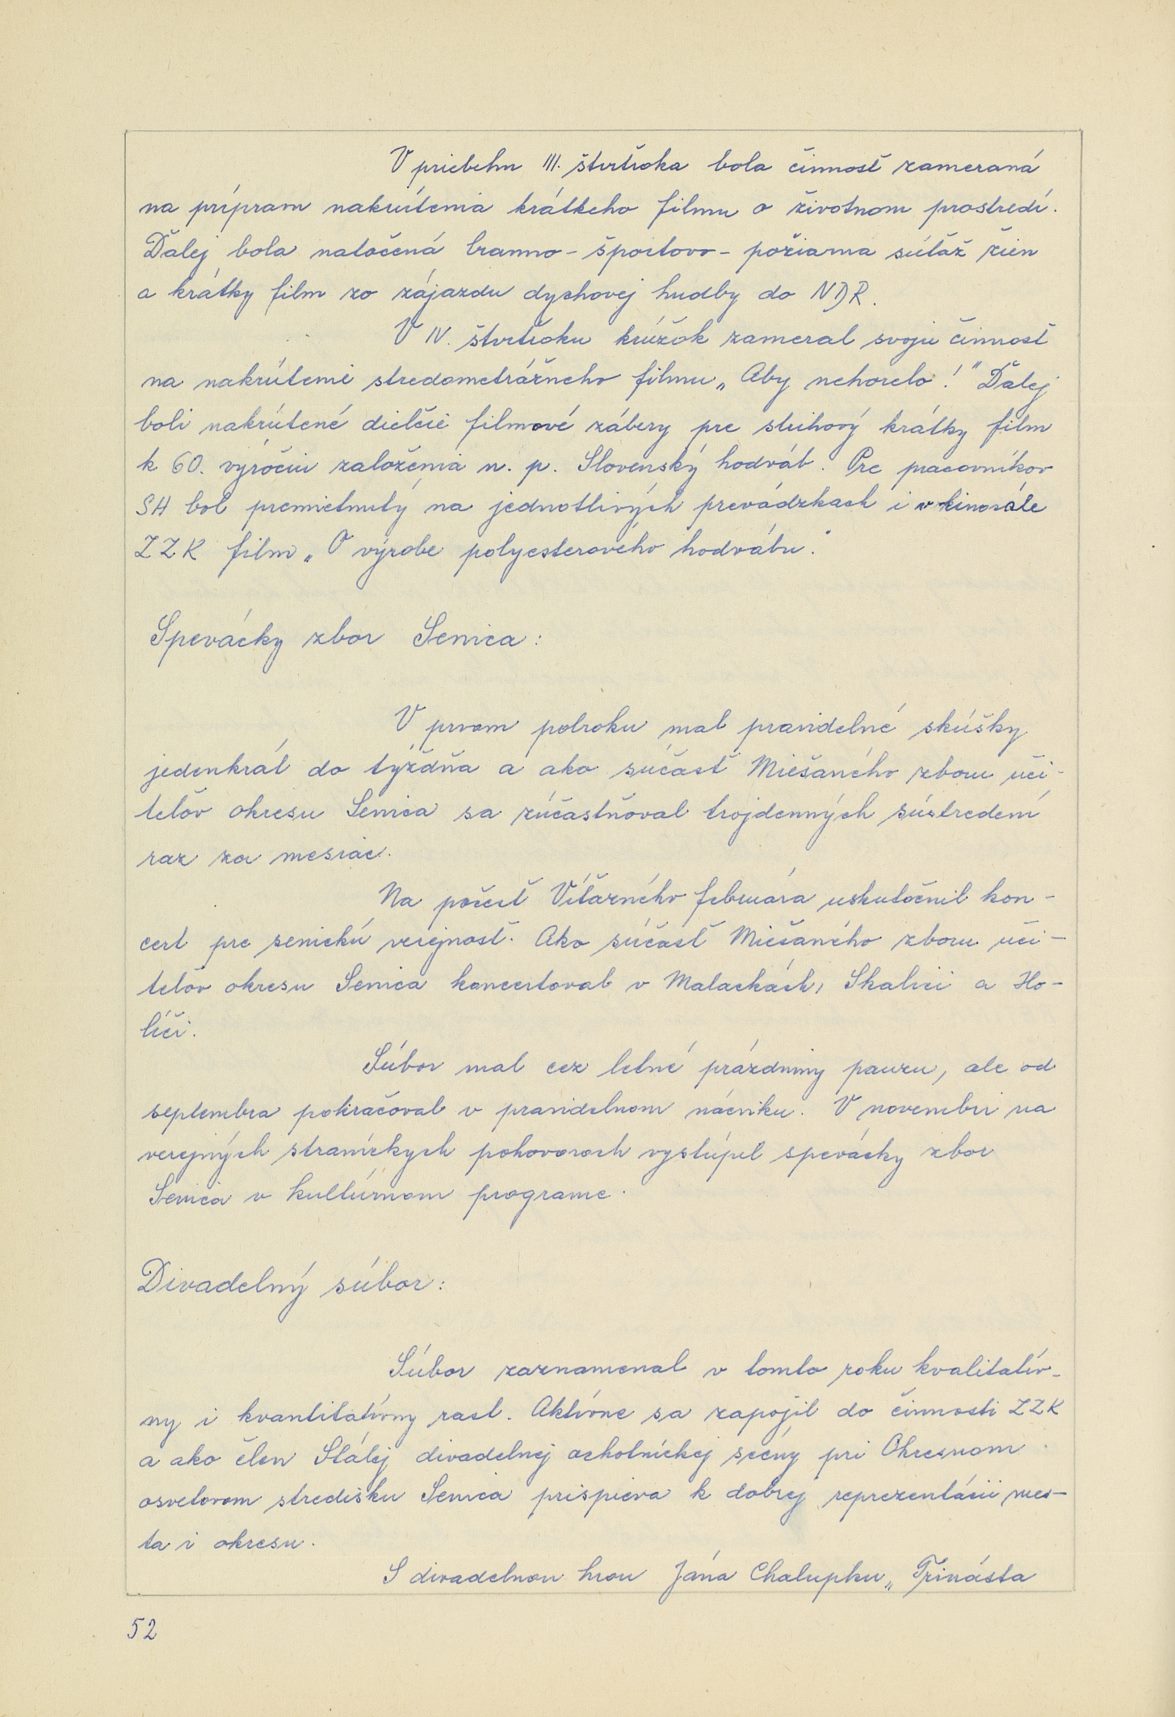 V priebehu III. štvrťroka bola činnosť zameraná
na prípravu nakrútenia krátkeho filmu o životnom prostredí.
Ďalej bola natočená branno - športovo - požiarna súťaž žien
a krátky film zo zájazdu dychovej hudby do NDR.
V IV. štvrťroku krúžok zameral svoju činnosť
na nakrútenie stredometrážneho filmu „Aby nehorelo!" Ďalej
boli nakrútené dielčie filmové zábery pre sľuhový krátky film
k 60. výročiu založenia n. p. Slovenský hodváb. Pre pracovníkov
SH bol premietnutý na jednotlivých prevádzkach i v kinosále
ZZK film „O výrobe polyesterového hodvábu."
Spevácky zbor Senica:
V prvom polroku mal pravidelné skúšky
jedenkrát do týždňa a ako súčasť Miešaného zboru uči-
teľov okresu Senica sa zúčastňoval trojdenných sústredení
raz za mesiac.
Na počesť Víťazného februára uskutočnil kon-
cert pre senickú verejnosť. Ako súčasť Miešaného zboru uči-
teľov okresu Senica koncertoval v Malackách, Skalici a Ho-
líči.
Súbor mal cez letné prázdniny pauzu, ale od
septembra pokračoval v pravidelnom nácviku. V novembri na
verejných straníckych pohovoroch vystúpil spevácky zbor
Senica v kultúrnom programe.
Divadelný súbor:
Súbor zaznamenal v tomto roku kvalitatív-
ny i kvantitatívny rast. Aktívne sa zapojil do činnosti ZZK
a ako člen Stálej divadelnej ochotníckej scény pri Okresnom
osvetovom stredisku Senica prispieva k dobrej reprezentácii mes-
ta i okresu.
S divadelnou hrou Jána Chalupku „Trinásta
52